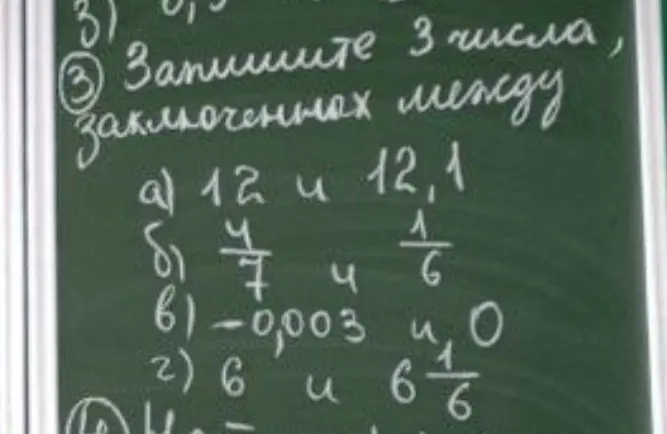 3)
③ Запишите 3 числа,
заключенных между
а) 12 и 12,1
б) 4/7 и 1/6
в) -0,003 и 0
г) 6 и 6 1/6